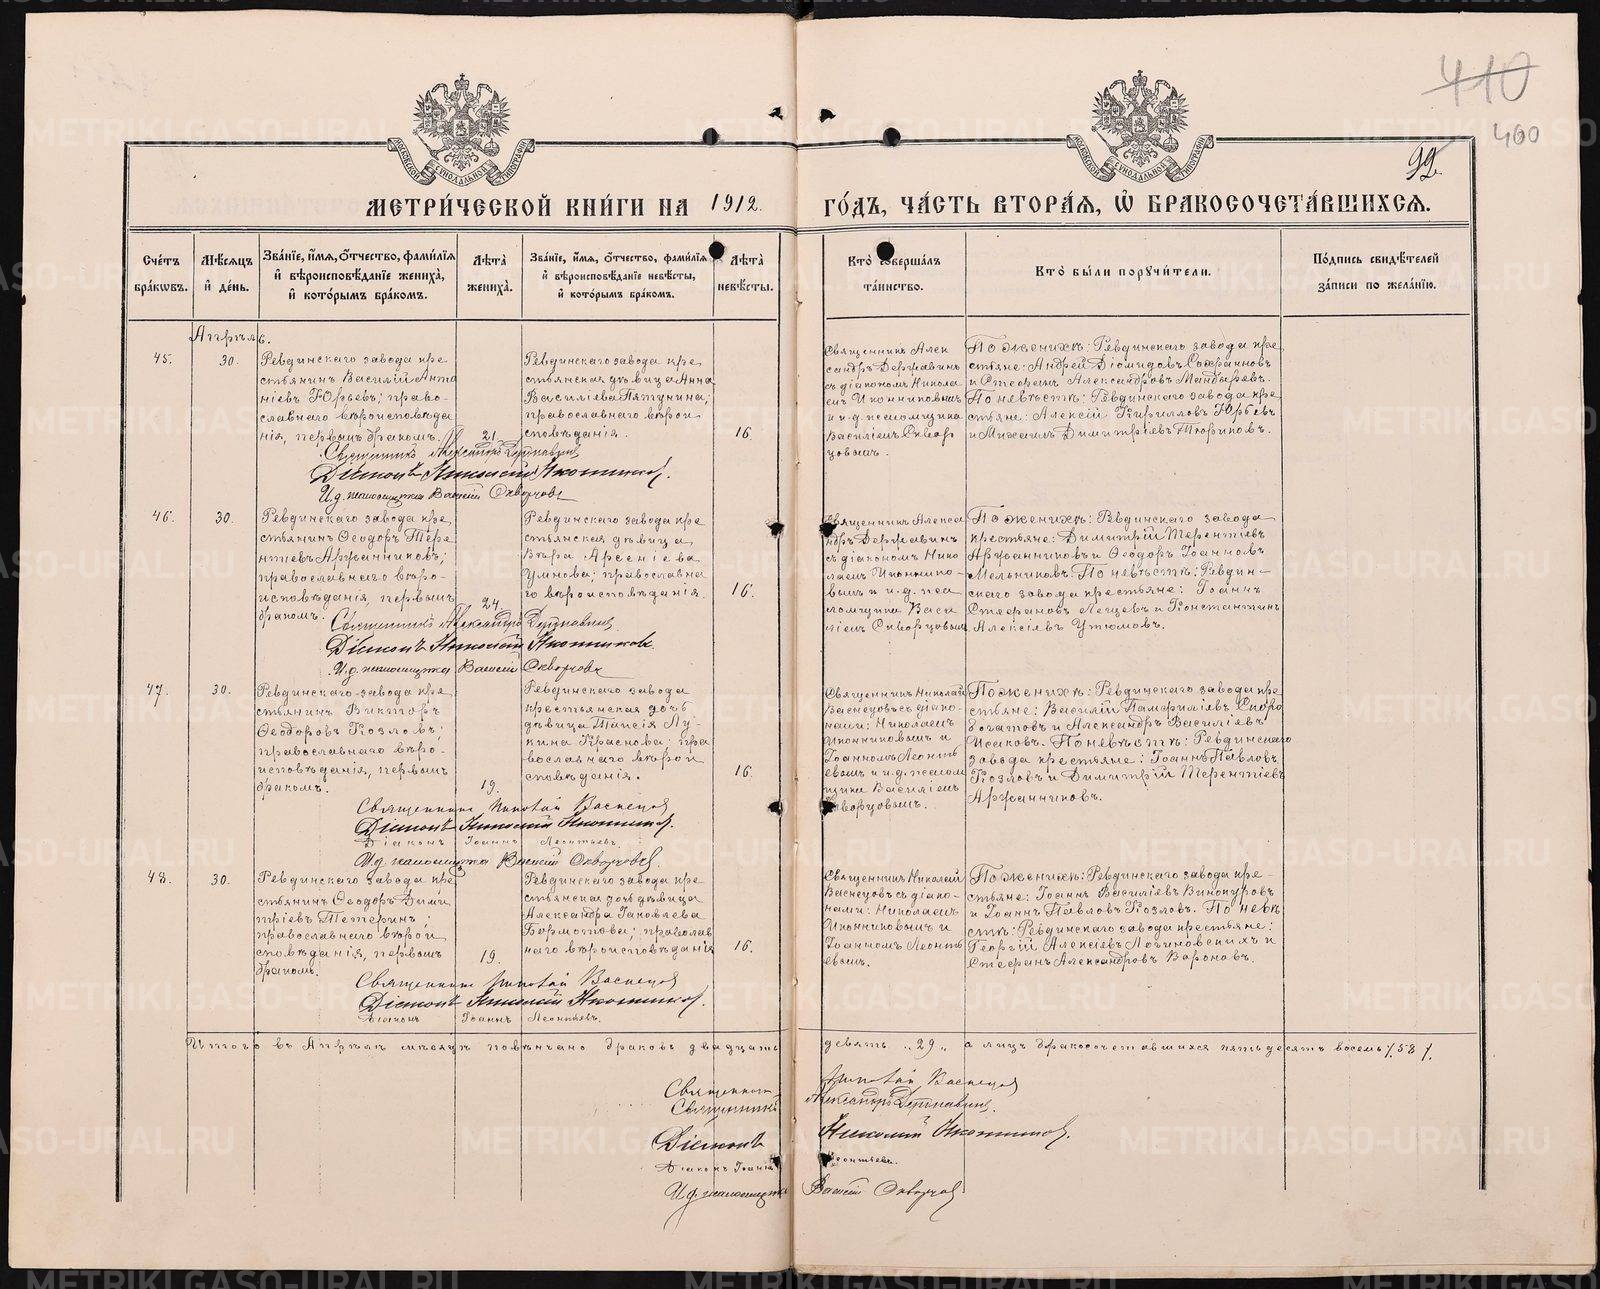 410
400
92
МОСКОВСКОЙ СѴНОДАЛЬНОЙ ТИПОГРАФІИ
МОСКОВСКОЙ СѴНОДАЛЬНОЙ ТИПОГРАФІИ
МЕТРИ́ЧЕСКОЙ КНИ́ГИ НА 1912. ГО́ДЪ, ЧА́СТЬ ВТОРА́Я, Ѡ҆ БРАКОСОЧЕТА́ВШИХСЯ.
Сче́тъ бра́кѡвъ.
Мѣ́сяцъ и҆ де́нь.
Зва́нїе, и҆́мя, ѻ҆́тчество, фами́лїя и҆ вѣроисповѣ́данїе жениха̀, и҆ кото́рымъ бра́комъ.
Лѣ́та жениха̀.
Зва́нїе, и҆́мя, ѻ҆́тчество, фами́лїя и҆ вѣроисповѣ́данїе невѣ́сты, и҆ кото́рымъ бра́комъ.
Лѣ́та невѣ́сты.
Кто̀ соверша́лъ та́инство.
Кто̀ бы́ли порꙋчи́тели.
По́дпись свидѣ́телей за́писи по жела́нїю.
Апрѣль.
45.
30.
Ревдинскаго завода кре
стьянинъ Василій Анто
ніевъ Юрьевъ; право-
славнаго вѣроисповѣда
нія, первымъ бракомъ.
21.
Ревдинскаго завода кре
стьянская дѣвица Анна
Василіева Пятунина;
православнаго вѣрои
сповѣданія.
16.
Священникъ Алек
сандръ Державинъ
съ діакономъ Никола
емъ Иконниковымъ
и и.д. псаломщика
Василіемъ Сквор
цовымъ.
По женихѣ: Ревдинскаго завода кре
стьяне: Андрей Діомидовъ Софроновъ
и Стефанъ Александровъ Мандыревъ.
По невѣстѣ: Ревдинскаго завода кре
стьяне: Алексій Кирилловъ Юрьевъ
и Михаилъ Димитріевъ Тюриковъ.
Священникъ Александръ Державинъ
Діаконъ Николай Иконниковъ.
И.д. псаломщика Василій Скворцовъ
46.
30.
Ревдинскаго завода кре
стьянинъ Ѳеодоръ Тере
нтіевъ Аржанниковъ;
православнаго вѣро-
исповѣданія, первымъ
бракомъ.
24.
Ревдинскаго завода кре
стьянская дѣвица
Вѣра Арсеніева
Умнова; православна
го вѣроисповѣданія.
16.
Священникъ Алекса
ндръ Державинъ
съ діакономъ Нико
лаемъ Иконнико-
вымъ и и.д. пса
ломщика Васи
ліемъ Скворцовымъ
По женихѣ: Ревдинскаго завода
крестьяне: Димитрій Терентіевъ
Аржанниковъ и Ѳеодоръ Іоанновъ
Мельниковъ. По невѣстѣ: Ревдин-
скаго завода крестьяне: Іоаннъ
Стефановъ Лещевъ и Константинъ
Алексіевъ Утюмовъ.
Священникъ Александръ Державинъ
Діаконъ Николай Иконниковъ.
И.д. псаломщика Василій Скворцовъ
47.
30.
Ревдинскаго завода кре
стьянинъ Викторъ
Ѳеодоровъ Козловъ;
православнаго вѣро-
исповѣданія, первымъ
бракомъ.
19.
Ревдинскаго завода
крестьянская дочь
дѣвица Таисія Лу-
кина Краснова; пра
вославнаго вѣрои
сповѣданія.
16.
Священникъ Николай
Васнецовъ съ діако-
нами: Николаемъ
Иконниковымъ и
Іоанномъ Леонть
евымъ и и.д. псалом
щика Василіемъ
Скворцовымъ.
По женихѣ: Ревдинскаго завода кре
стьяне: Василій Памфиліевъ Скоро
богатовъ и Александръ Василіевъ
Исаковъ. По невѣстѣ: Ревдинскаго
завода крестьяне: Іоаннъ Павловъ
Козловъ и Димитрій Терентіевъ
Аржанниковъ.
Священникъ Николай Васнецовъ
Діаконъ Николай Иконниковъ.
Діаконъ Іоаннъ Леонтьевъ.
И.д. псаломщика Василій Скворцовъ.
48.
30.
Ревдинскаго завода кре
стьянинъ Ѳеодоръ Дими
тріевъ Тетеринъ;
православнаго вѣрои
сповѣданія, первымъ
бракомъ.
19.
Ревдинскаго завода кре
стьянская дочь дѣвица
Александра Іаковлева
Бормотова; православ
наго вѣроисповѣданія
16.
Священникъ Николай
Васнецовъ съ діако-
нами: Николаемъ
Иконниковымъ и
Іоанномъ Леонть
евымъ.
По женихѣ: Ревдинскаго завода кре-
стьяне: Іоаннъ Василіевъ Винокуровъ
и Іоаннъ Павловъ Козловъ. По невѣ
стѣ: Ревдинскаго завода крестьяне:
Георгій Алексіевъ Логиновскихъ и
Стефанъ Александровъ Вороновъ.
Священникъ Николай Васнецовъ
Діаконъ Николай Иконниковъ.
Діаконъ Іоаннъ Леонтьевъ.
Итого въ Апрѣлѣ мѣсяцѣ повѣнчано браковъ двадцать девять „29„ а лицъ бракосочетавшихся пятьдесятъ восемь /58/.
Священникъ Николай Васнецовъ
Священникъ Александръ Державинъ.
Діаконъ Николай Иконниковъ.
Діаконъ Іоаннъ Леонтьевъ.
И.д. псаломщика Василій Скворцовъ
METRIKI.GASO-URAL.RU